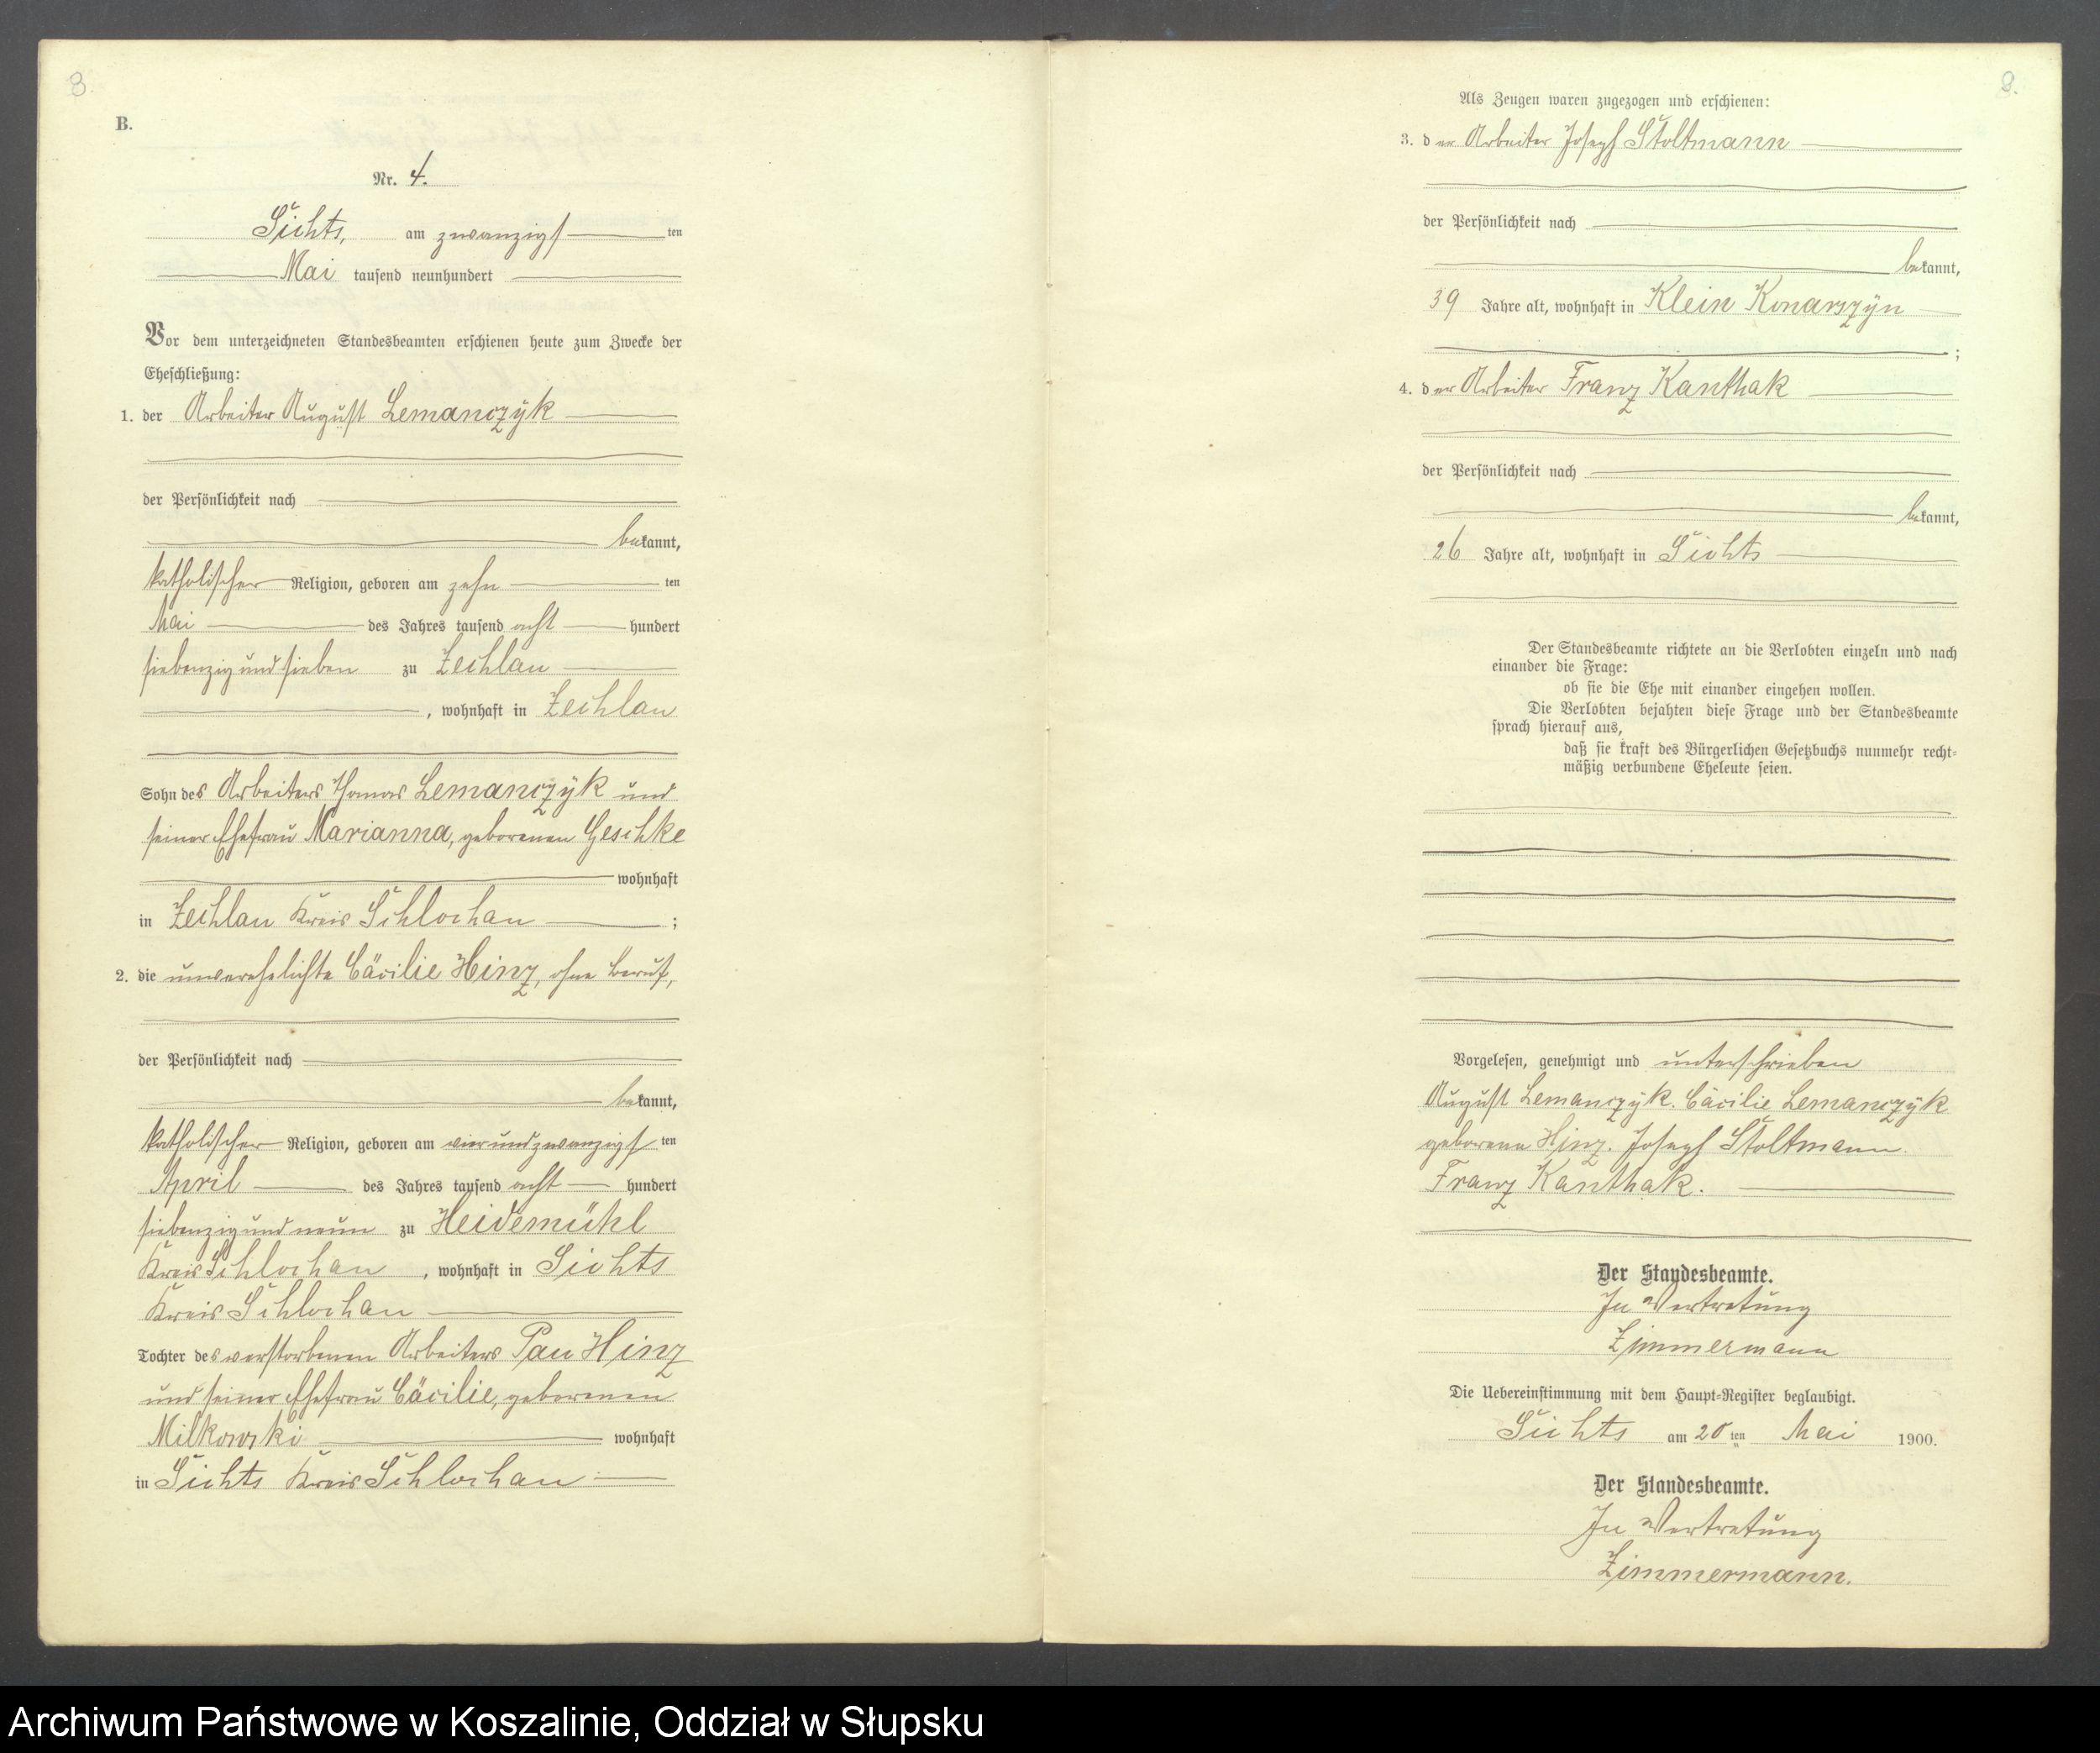 8.
B.
Nr. 4.
Sichts, am zwanzigsten
Mai tausend neunhundert
Vor dem unterzeichneten Standesbeamten erschienen heute zum Zwecke der
Eheschließung:
1. der Arbeiter August Lemanczÿk
der Persönlichkeit nach
bekannt,
katholischer Religion, geboren am zehnten
Mai des Jahres tausend acht hundert
siebenzig und sieben zu Zechlau
, wohnhaft in Zechlau
Sohn des Arbeiters Thomas Lemanczÿk und
seiner Ehefrau Marianna, geborenen Geschke
wohnhaft
in Zechlau Kreis Schlochau ;
2. die unverehelichte Cäcilie Hinz, ohne Beruf,
der Persönlichkeit nach
bekannt,
katholischer Religion, geboren am vierundzwanzigsten
April des Jahres tausend acht hundert
siebenzig und neun zu Heidemühl
Kreis Schlochau, wohnhaft in Sichts
Kreis Schlochau
Tochter des verstorbenen Arbeiters Pau Hinz
und seiner Ehefrau Cäcilie, geborenen
Milkowski wohnhaft
in Sichts Kreis Schlochau
8.
Als Zeugen waren zugezogen und erschienen:
3. der Arbeiter Joseph Stoltmann
der Persönlichkeit nach
bekannt,
39 Jahre alt, wohnhaft in Klein Konarszÿn
;
4. der Arbeiter Franz Kanthak
der Persönlichkeit nach
bekannt,
26 Jahre alt, wohnhaft in Sichts
Der Standesbeamte richtete an die Verlobten einzeln und nach
einander die Frage:
ob sie die Ehe mit einander eingehen wollen.
Die Verlobten bejahten diese Frage und der Standesbeamte
sprach hierauf aus,
daß sie kraft des Bürgerlichen Gesetzbuchs nunmehr recht-
mäßig verbundene Eheleute seien.
Vorgelesen, genehmigt und unterschrieben
August Lemanczÿk. Cäcilie Lemanczÿk
geborene Hinz. Joseph Stoltmann.
Franz Kanthak.
Der Standesbeamte.
In Vertretung
Zimmermann
Die Uebereinstimmung mit dem Haupt-Register beglaubigt.
Sichts am 20ten Mai 1900.
Der Standesbeamte.
In Vertretung
Zimmermann.
Archiwum Państwowe w Koszalinie, Oddział w Słupsku